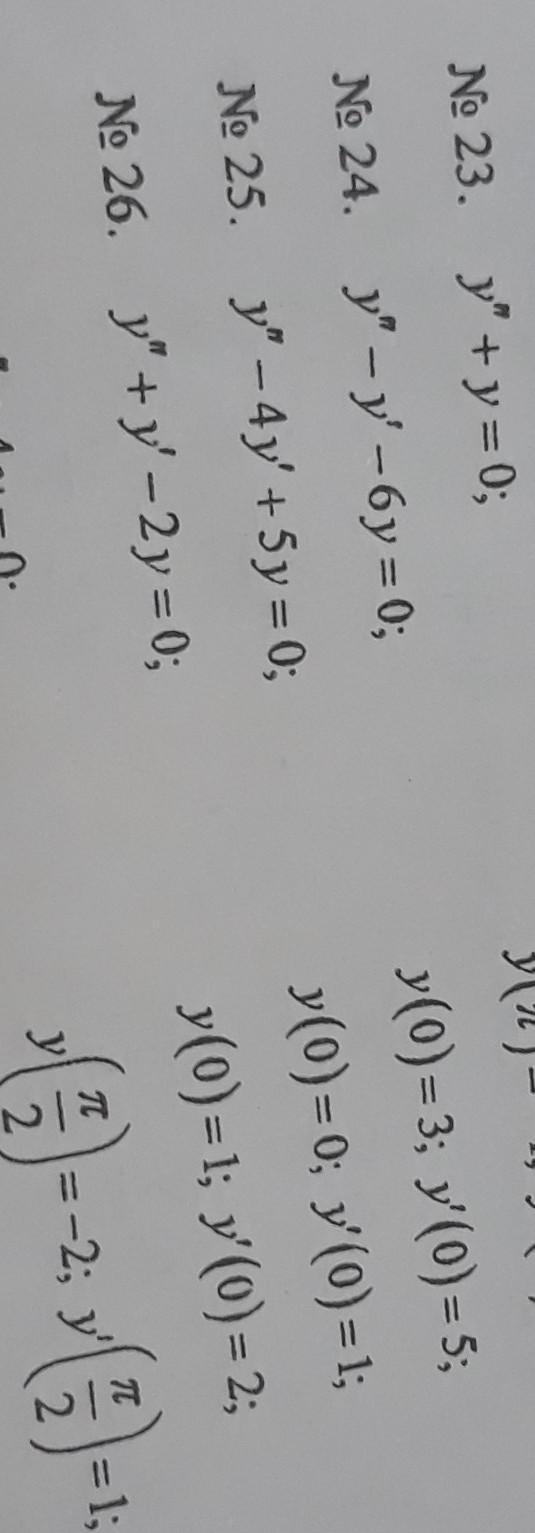 № 23. y" + y = 0; y(π) =
№ 24. y" − y' − 6y = 0; y(0) = 3; y'(0) = 5;
№ 25. y" − 4y' + 5y = 0; y(0) = 0; y'(0) = 1;
№ 26. y" + y' − 2y = 0; y(0) = 1; y'(0) = 2;
= 0; y(π/2) = −2; y'(π/2) = 1;